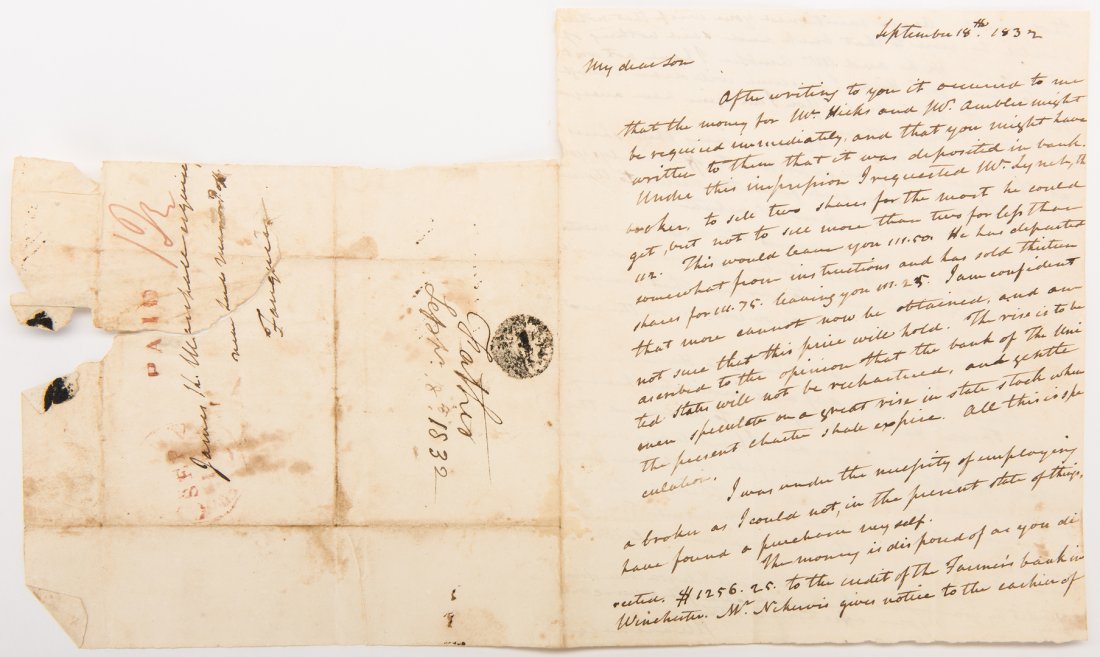 September 18th. 1832
My dear Son
After writing to you it occurred to me
that the money for Mr. Hicks and Mr. Ambler might
be required immediately, and that you might have
written to them that it was deposited in bank.
Under this impression I requested Mr. the
broker, to sell two shares for the most he could
get, but not to sell more than two for less than
112. This would leave you 111.50. He has departed
somewhat from instructions and has sold thirteen
shares for 111.75. leaving you 111.25. I am confident
that more cannot now be obtained, and am
not sure that this price will hold. The rise is to be
ascribed to the opinion that the bank of the Uni
ted States will not be rechartered, and gentle
men speculate on a great rise in state stock when
the present charter shall expire. All this is spe
culation.
I was under the necessity of employing
a broker as I could not, in the present state of things,
have found a purchaser myself.
The money is disposed of as you di
rected. $1256.25. to the credit of the Farmer's bank in
Winchester. Mr. Nekervis gives notice to the cashier of
PAID
James K. Marshall esquire
near
Fauquier
SEP
Father
Septr. 18th. 1832